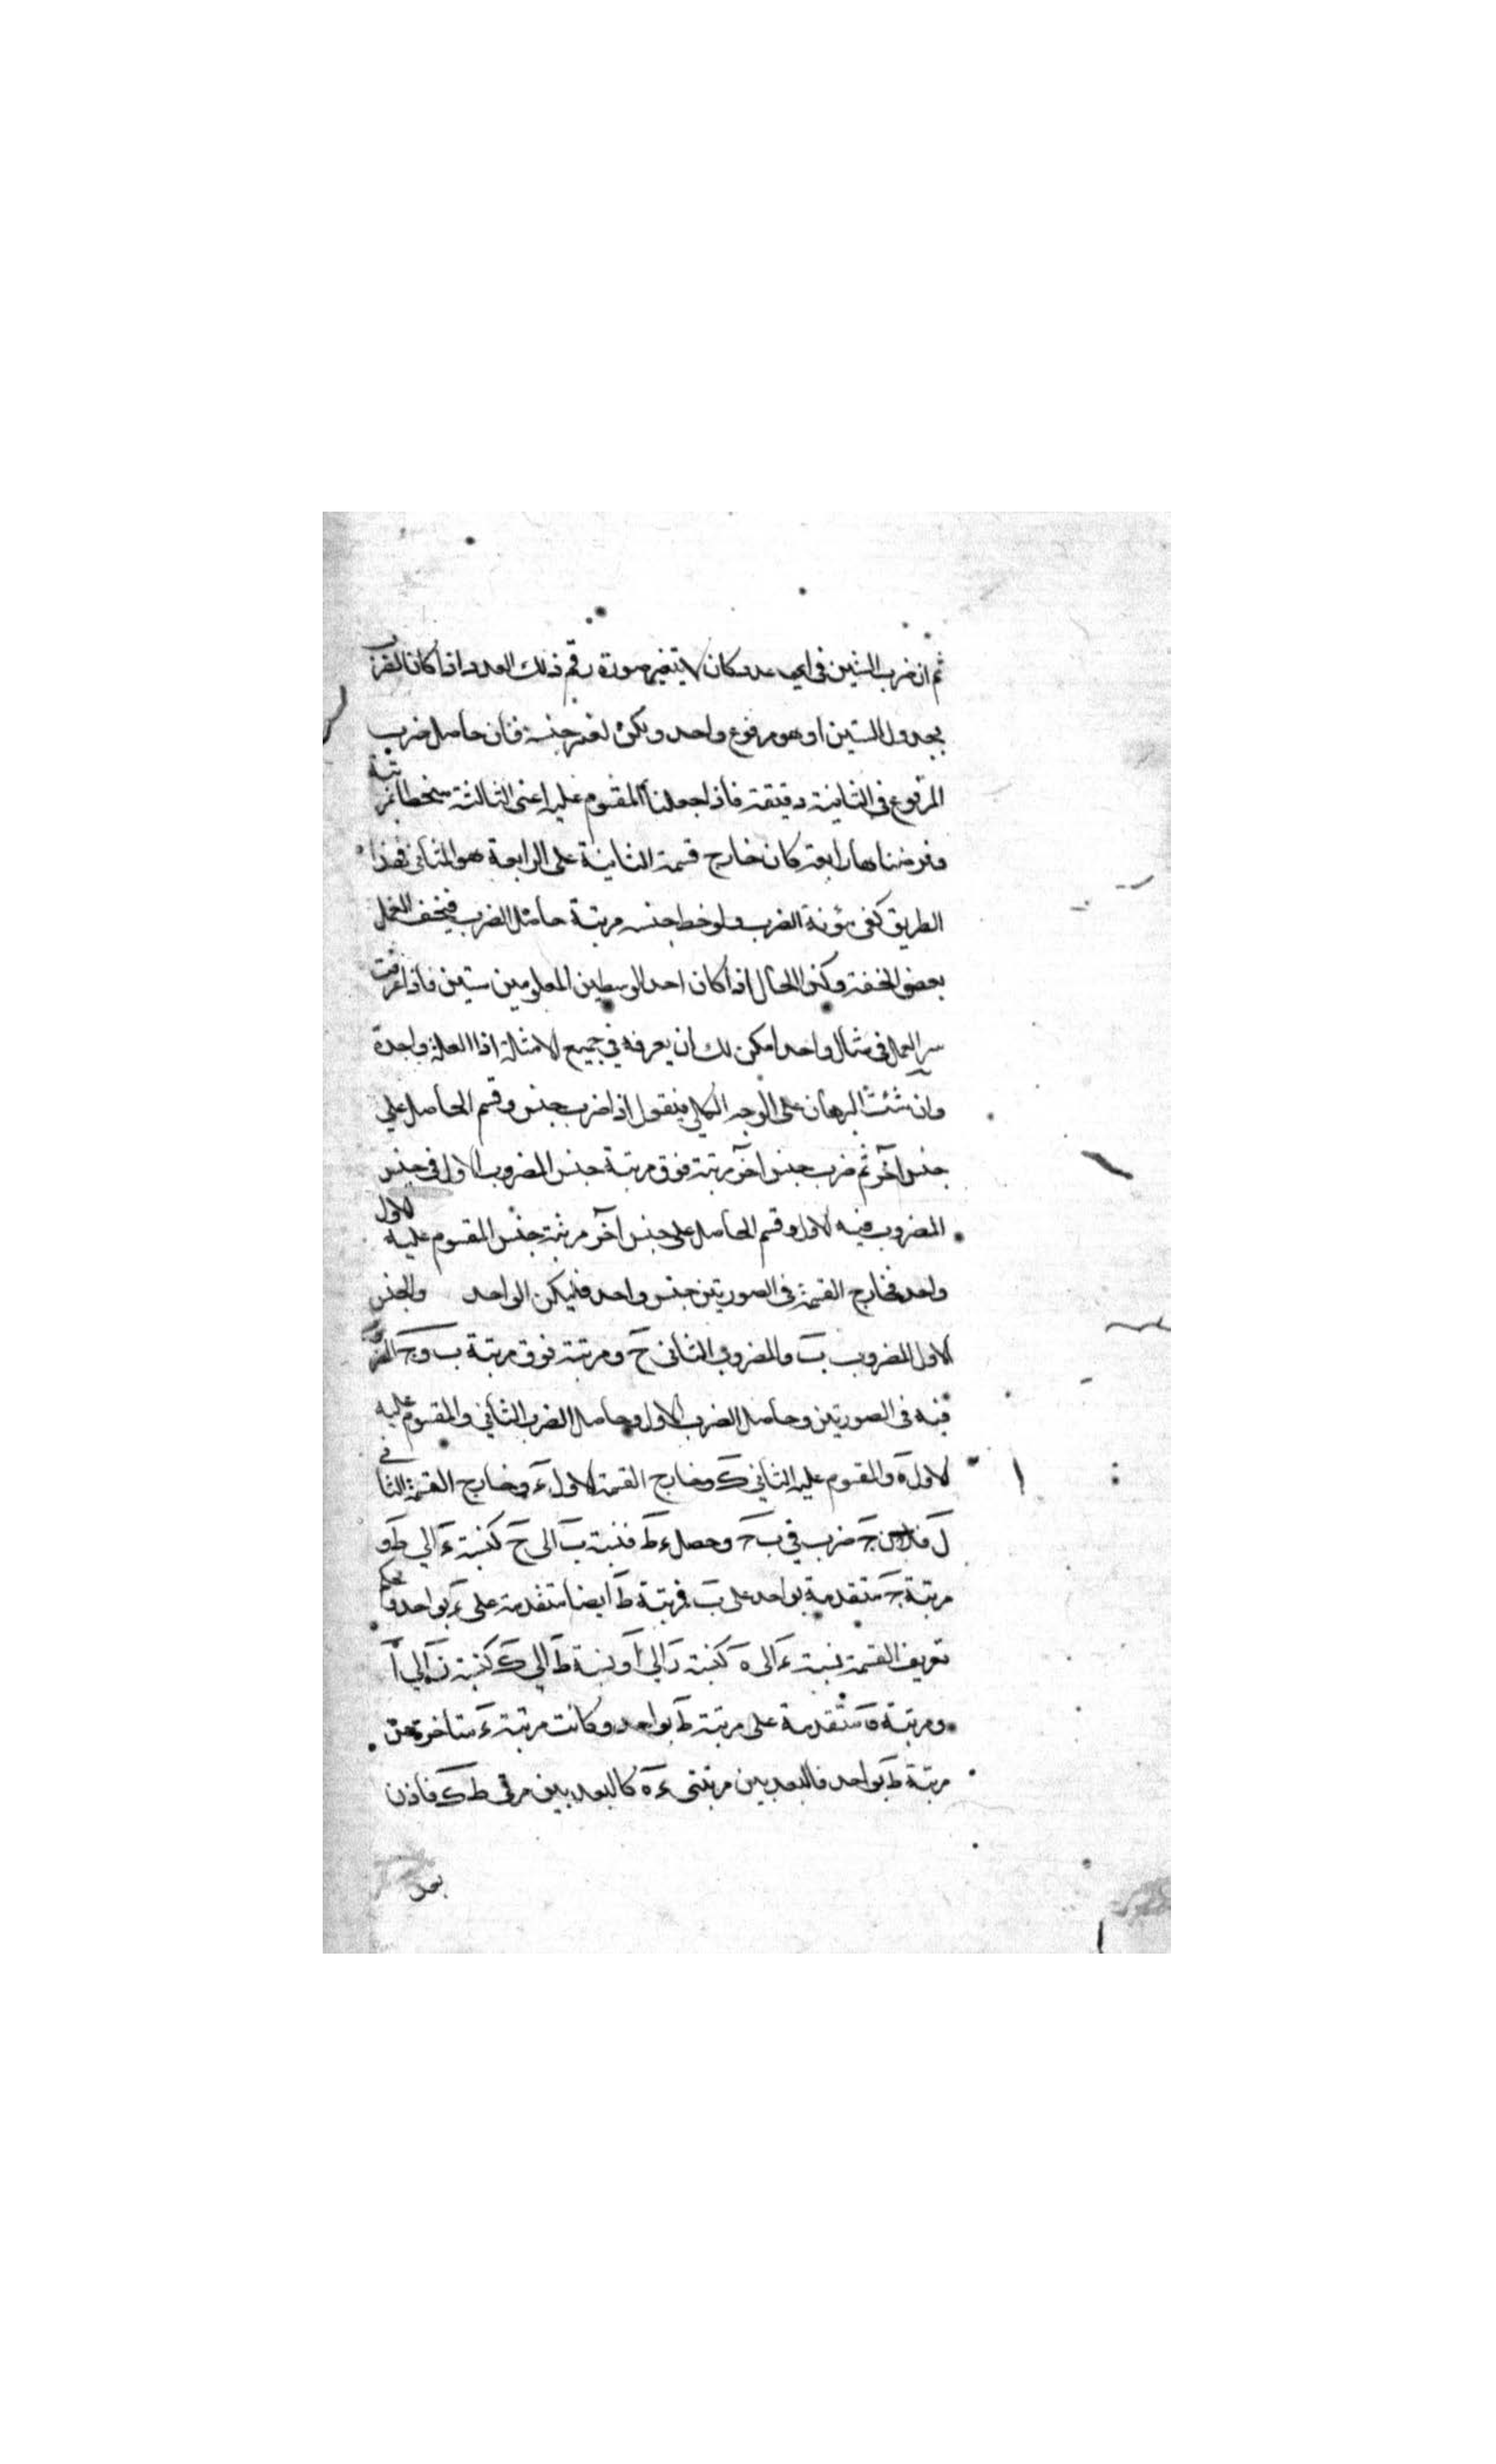 ثم ان ضرب الستين في اي عدد كان لا يتغير صورة رقم ذلك العدد اذا كان الضرب
بجدول الستين او هو مرفوع واحد ويكون لغير جنسه فان حاصل ضرب
المرفوع في الثانية دقيقة فاذا جعلنا المقسوم عليه اعني الثالثة منحطا مرتبة
وفرضناها رابعة كان خارج قسمة الثانية على الرابعة هو الثاني فهذا
الطريق كفى مؤنة الضرب ولوحظ جنس مرتبة حاصل الضرب فيخف العمل
بعض الخفة وكذى الحال اذا كان احد الوسطين المعلومين ستين فاذا عرفت
سر العمل في مثال واحد امكن لك ان يعرفه في جميع الامثلة اذا العلة واحدة
وان شئت البرهان على الوجه الكلي فنقول اذا ضرب جنس وقسم الحاصل على
جنس آخر ثم ضرب جنس آخر مرتبة فوق مرتبة جنس المضروب الاول في جنس
المضروب فيه الاول وقسم الحاصل على جنس آخر مرتبة جنس المقسوم عليه الاول
واحد فخارج القسمة في الصورتين جنس واحد فليكن الواحد والجنس
الاول المضروب ب والمضروب الثاني ح ومرتبة فوق مرتبة ب و ج المضروب
فيه في الصورتين وحاصل الضرب الاول وحاصل الضرب الثاني والمقسوم عليه
الاول ه والمقسوم عليه الثاني ك وخارج القسمة الاول ء وخارج القسمة الثاني
ل فلان ج ضرب في ب ح وحصل ء ط فنسبة ب الى ح كنسبة ء الى ط و
مرتبة ح متقدمة بواحد على ب فمرتبة ط ايضا متقدمة على ء بواحد وبحكم
تعريف القسمة نسبة ء الى ه كنسبة ر الى أ ونسبة ط الى ك كنسبة ل الى أ
ومرتبة ه متقدمة على مرتبة ط بواحد وكانت مرتبة ء متاخرة عن
مرتبة ط بواحد فالبعد بين مرتبتي ء ه كالبعد بين مرتبتي ط ك فاذن
بعد